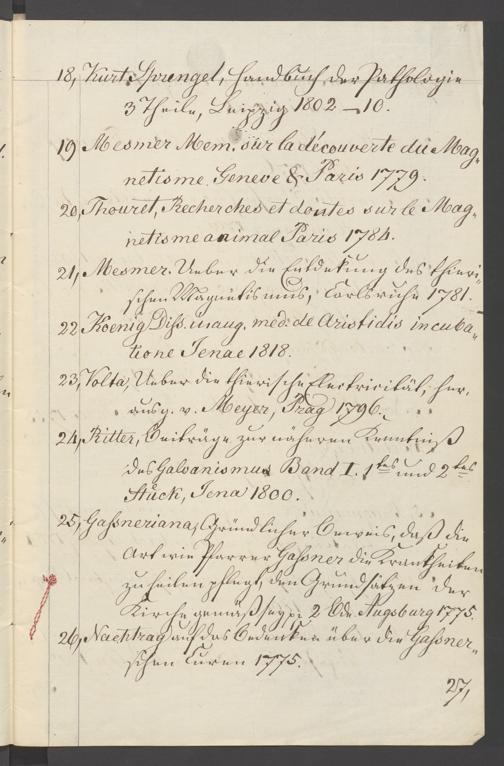 18, Kurt Sprengel, Handbuch der Pathologie
3 Theile, Leipzig 1802–10.
19 Mesmer Mem. sur la découverte du Mag„
netisme. Geneve & Paris 1779.
20, Thouret, Recherches et doutes sur le Mag„
netisme animal Paris 1784.
21, Mesmer. Ueber die Entdekung des thieri„
schen Magnetismus, Carlsruhe 1781.
22 Koenig Diss. inaug. med: de Aristidis incuba„
tione Jenae 1818.
23, Volta, Ueber die thierische Electricität, her„
ausg. v. Meyer, Prag 1796.
24, Ritter, Beiträge zur näheren Kenntniß
des Galvanismus Band I. 1tes und 2tes
Stück, Jena 1800.
25, Gaßneriana, Gründlicher Beweis, daß die
Art wie Pfarrer Gaßner die Krankheiten
zu heilen pflegt, den Grundsätzen der
Kirche gemäß sey, 2 Augsburg 1775.
26, Nachtrag auf das Bedenken über die Gaßner„
schen Curen 1775.
27,